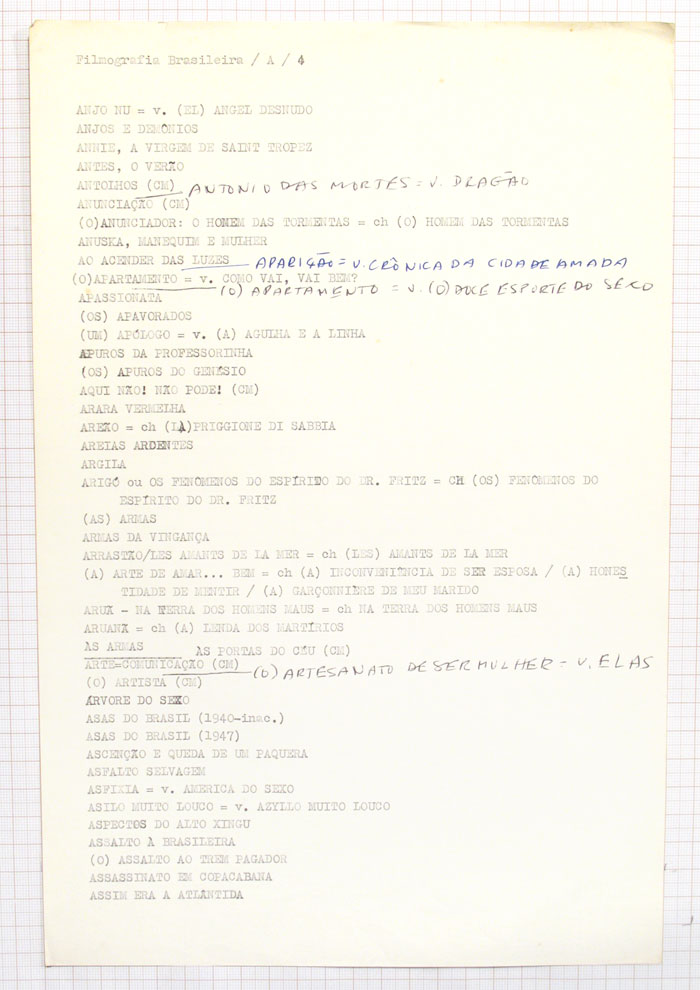 Filmografia Brasileira / A / 4
ANJO NU = v. (EL) ANGEL DESNUDO
ANJOS E DEMÔNIOS
ANNIE, A VIRGEM DE SAINT TROPEZ
ANTES, O VERÃO
ANTOLHOS (CM) ANTONIO DAS MORTES = V. DRAGÃO
ANUNCIAÇÃO (CM)
(O)ANUNCIADOR: O HOMEM DAS TORMENTAS = ch (O) HOMEM DAS TORMENTAS
ANUSKA, MANEQUIM E MULHER
AO ACENDER DAS LUZES APARIÇÃO = V. CRÔNICA DA CIDADE AMADA
(O)APARTAMENTO = v. COMO VAI, VAI BEM?
(O) APARTAMENTO = V. (O) DOCE ESPORTE DO SEXO
APASSIONATA
(OS) APAVORADOS
(UM) APÓLOGO = v. (A) AGULHA E A LINHA
APUROS DA PROFESSORINHA
(OS) APUROS DO GENÉSIO
AQUI NÃO! NÃO PODE! (CM)
ARARA VERMELHA
AREÃO = ch (LA)PRIGGIONE DI SABBIA
AREIAS ARDENTES
ARGILA
ARIGÓ ou OS FENOMENOS DO ESPÍRITO DO DR. FRITZ = CH (OS) FENOMENOS DO
ESPÍRITO DO DR. FRITZ
(AS) ARMAS
ARMAS DA VINGANÇA
ARRASTÃO/LES AMANTS DE LA MER = ch (LES) AMANTS DE LA MER
(A) ARTE DE AMAR... BEM = ch (A) INCONVENIÊNCIA DE SER ESPOSA / (A) HONES
TIDADE DE MENTIR / (A) GARÇONNIÈRE DE MEU MARIDO
ARUÃ - NA TERRA DOS HOMENS MAUS = ch NA TERRA DOS HOMENS MAUS
ARUANÃ = ch (A) LENDA DOS MARTÍRIOS
ÀS ARMAS ÀS PORTAS DO CÉU (CM)
ARTE=COMUNICAÇÃO (CM) (O) ARTESANATO DE SER MULHER = V. ELAS
(O) ARTISTA (CM)
ÁRVORE DO SEXO
ASAS DO BRASIL (1940-inac.)
ASAS DO BRASIL (1947)
ASCENÇÃO E QUEDA DE UM PAQUERA
ASFALTO SELVAGEM
ASFIXIA = v. AMERICA DO SEXO
ASILO MUITO LOUCO = v. AZYLLO MUITO LOUCO
ASPECTOS DO ALTO XINGU
ASSALTO À BRASILEIRA
(O) ASSALTO AO TREM PAGADOR
ASSASSINATO EM COPACABANA
ASSIM ERA A ATLÂNTIDA